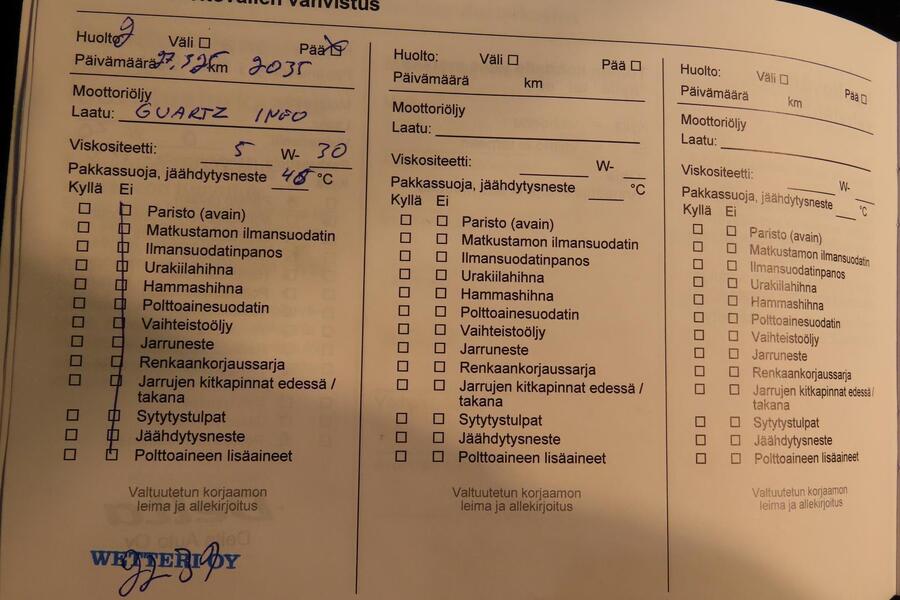 vahvistus
Huolto: 2 Väli □ Pää ☒
Päivämäärä km 2035
Moottoriöljy
Laatu: QUARTZ INEO
Viskositeetti: 5 W- 30
Pakkassuoja, jäähdytysneste °C
Kyllä Ei
□ □ Paristo (avain)
□ □ Matkustamon ilmansuodatin
□ □ Ilmansuodatinpanos
□ □ Urakiilahihna
□ □ Hammashihna
□ □ Polttoainesuodatin
□ □ Vaihteistoöljy
□ □ Jarruneste
□ □ Renkaankorjaussarja
□ □ Jarrujen kitkapinnat edessä /
takana
□ □ Sytytystulpat
□ □ Jäähdytysneste
□ □ Polttoaineen lisäaineet
Valtuutetun korjaamon
leima ja allekirjoitus
WETTERI OY
Huolto: Väli □ Pää □
Päivämäärä km
Moottoriöljy
Laatu:
Viskositeetti: W-
Pakkassuoja, jäähdytysneste °C
Kyllä Ei
□ □ Paristo (avain)
□ □ Matkustamon ilmansuodatin
□ □ Ilmansuodatinpanos
□ □ Urakiilahihna
□ □ Hammashihna
□ □ Polttoainesuodatin
□ □ Vaihteistoöljy
□ □ Jarruneste
□ □ Renkaankorjaussarja
□ □ Jarrujen kitkapinnat edessä /
takana
□ □ Sytytystulpat
□ □ Jäähdytysneste
□ □ Polttoaineen lisäaineet
Valtuutetun korjaamon
leima ja allekirjoitus
Huolto: Väli □ Pää □
Päivämäärä km
Moottoriöljy
Laatu:
Viskositeetti: W-
Pakkassuoja, jäähdytysneste °C
Kyllä Ei
□ □ Paristo (avain)
□ □ Matkustamon ilmansuodatin
□ □ Ilmansuodatinpanos
□ □ Urakiilahihna
□ □ Hammashihna
□ □ Polttoainesuodatin
□ □ Vaihteistoöljy
□ □ Jarruneste
□ □ Renkaankorjaussarja
□ □ Jarrujen kitkapinnat edessä /
takana
□ □ Sytytystulpat
□ □ Jäähdytysneste
□ □ Polttoaineen lisäaineet
Valtuutetun korjaamon
leima ja allekirjoitus